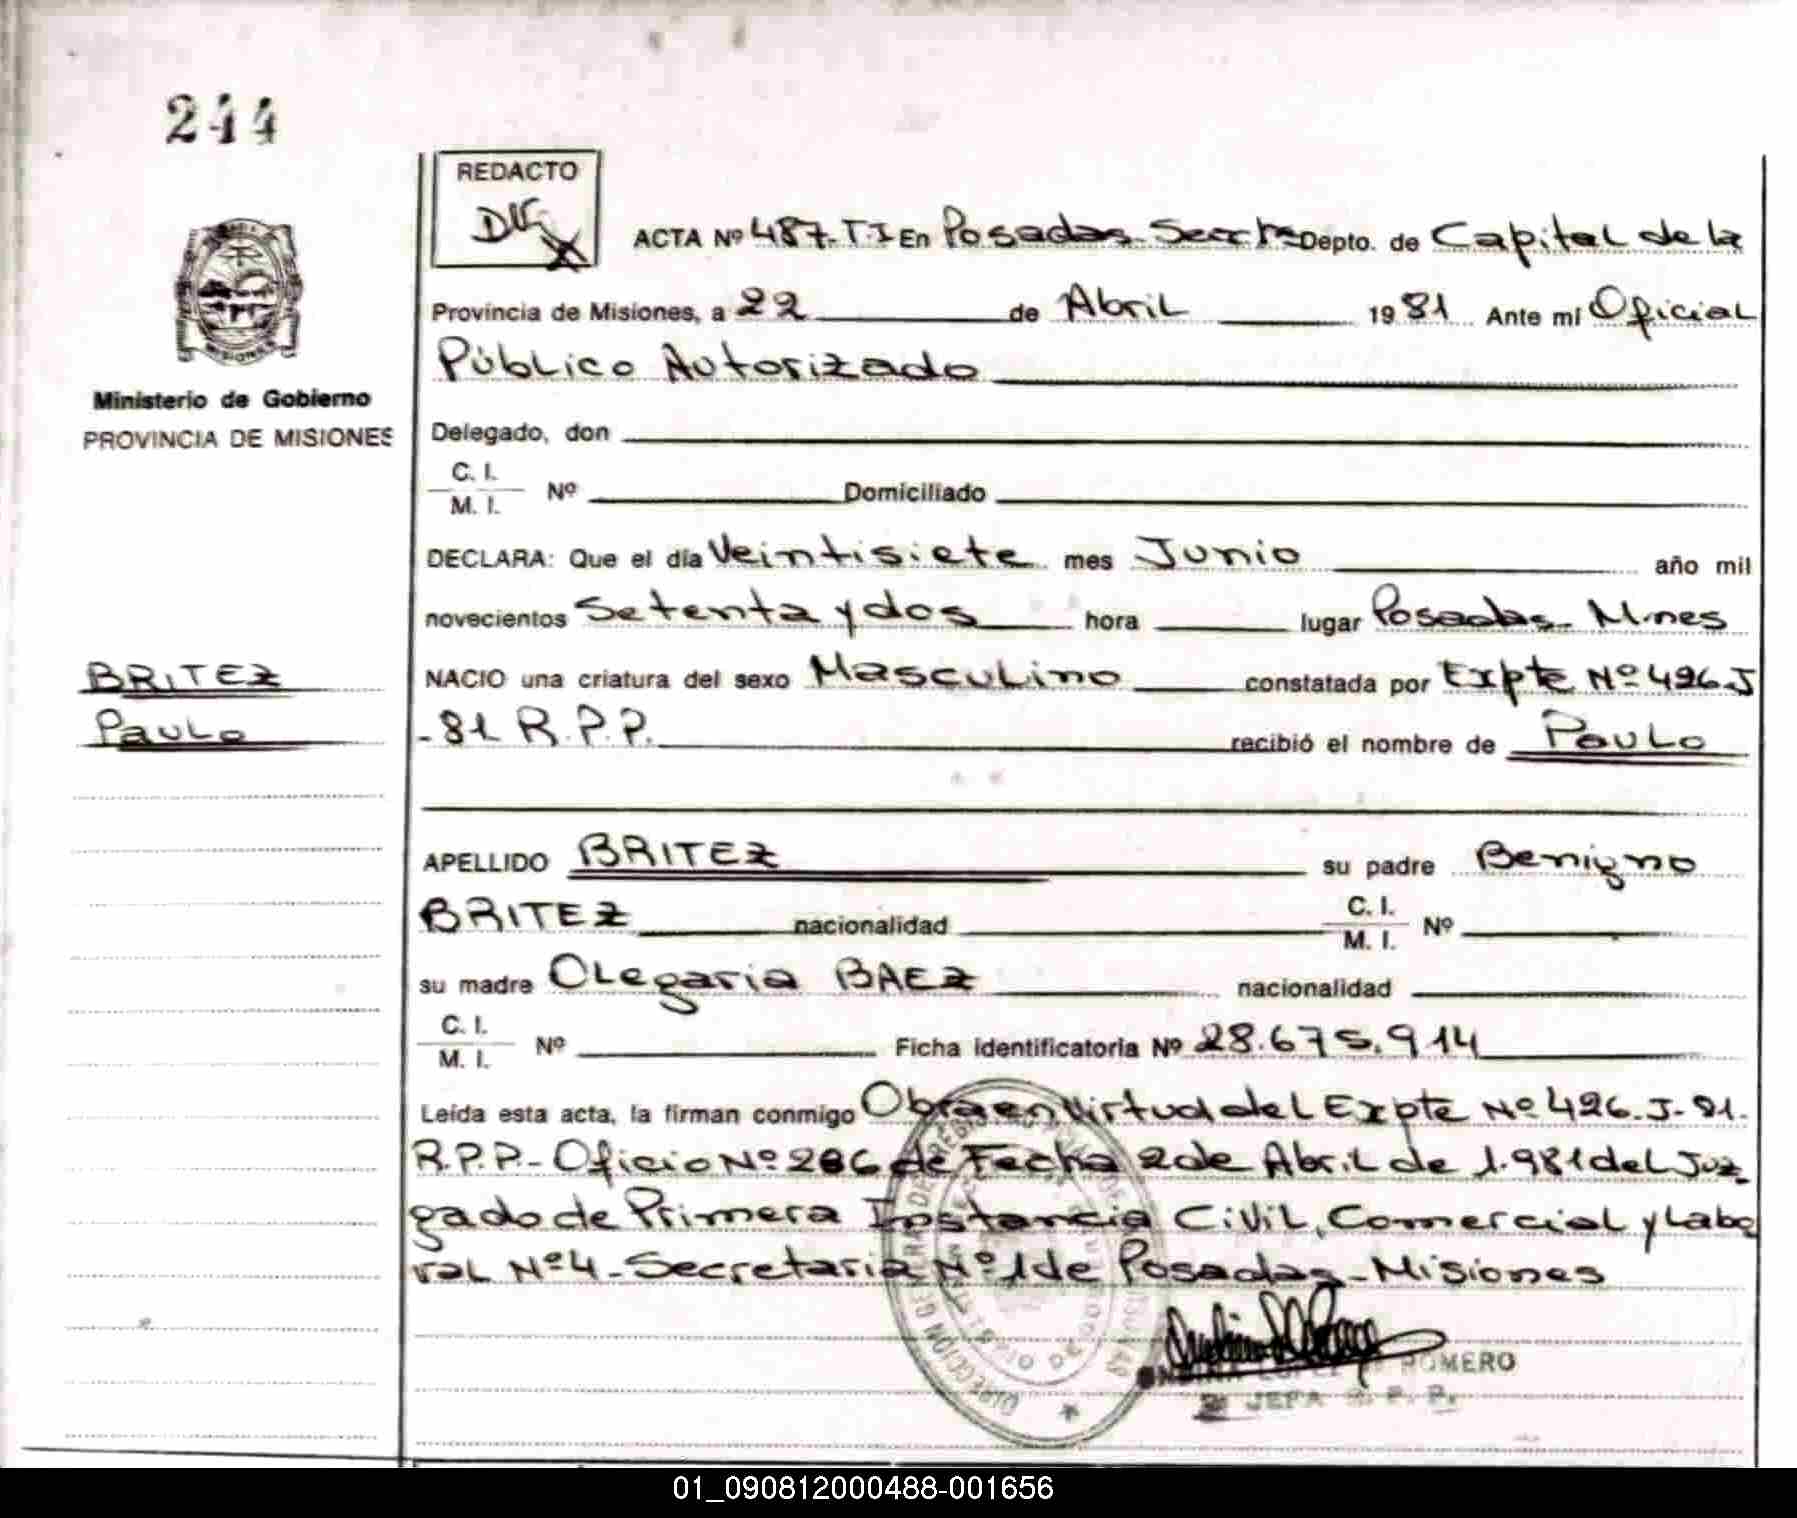 244
REDACTO
ACTA Nº 487-T.I En Posadas Depto. de Capital de la
Provincia de Misiones, a 22 de Abril 1981 Ante mí Oficial
Público Autorizado
Ministerio de Gobierno
PROVINCIA DE MISIONES
Delegado, don
C. I.
M. I. Nº Domiciliado
DECLARA: Que el día Veintisiete mes Junio año mil
novecientos Setenta y dos hora lugar Posadas - Mnes
BRITEZ
Paulo
NACIO una criatura del sexo Masculino constatada por Expte Nº 426.J
-81 R.P.P. recibió el nombre de Paulo
APELLIDO BRITEZ su padre Benigno
BRITEZ nacionalidad C. I.
M. I. Nº
su madre OLegaria BAEZ nacionalidad
C. I.
M. I. Nº Ficha identificatoria Nº 28.675.914
Leída esta acta, la firman conmigo Obra en Virtud del Expte Nº 426.J-81.
R.P.P.- Oficio Nº 286 de Fecha 2 de Abril de 1.981 del Juz
gado de Primera Instancia CiViL, Comercial y Labo
ral Nº 4 - Secretaria Nº 1 de Posadas - Misiones
ROMERO
JEFA R. P. P.
01_090812000488-001656